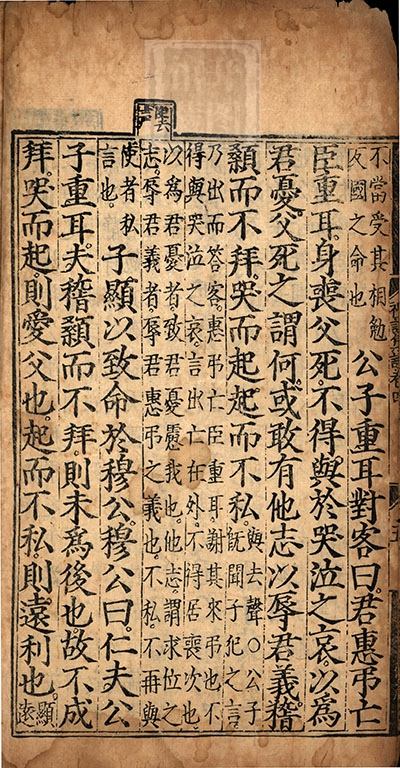 不當受其相勉
反國之命也
公子重耳對客曰。君惠弔亡
臣重耳。身喪父死。不得與於哭泣之哀。以爲
君憂。父死之謂何。或敢有他志。以辱君義。稽
顙而不拜。哭而起。起而不私。
與去聲○公子
旣聞子犯之言
乃出而答客。惠弔亡臣重耳。謝其來弔也。不
得與哭泣之哀。言出亡在外。不得居喪次也。
以爲君憂者。致君憂慮我也。他志。謂求位之
志。辱君義者。辱君惠弔之義也。不私。不再與
使者私
言也。
子顯以致命於穆公。穆公曰。仁夫公
子重耳。夫稽顙而不拜。則未爲後也。故不成
拜。哭而起。則愛父也。起而不私。則遠利也。
顯
遠